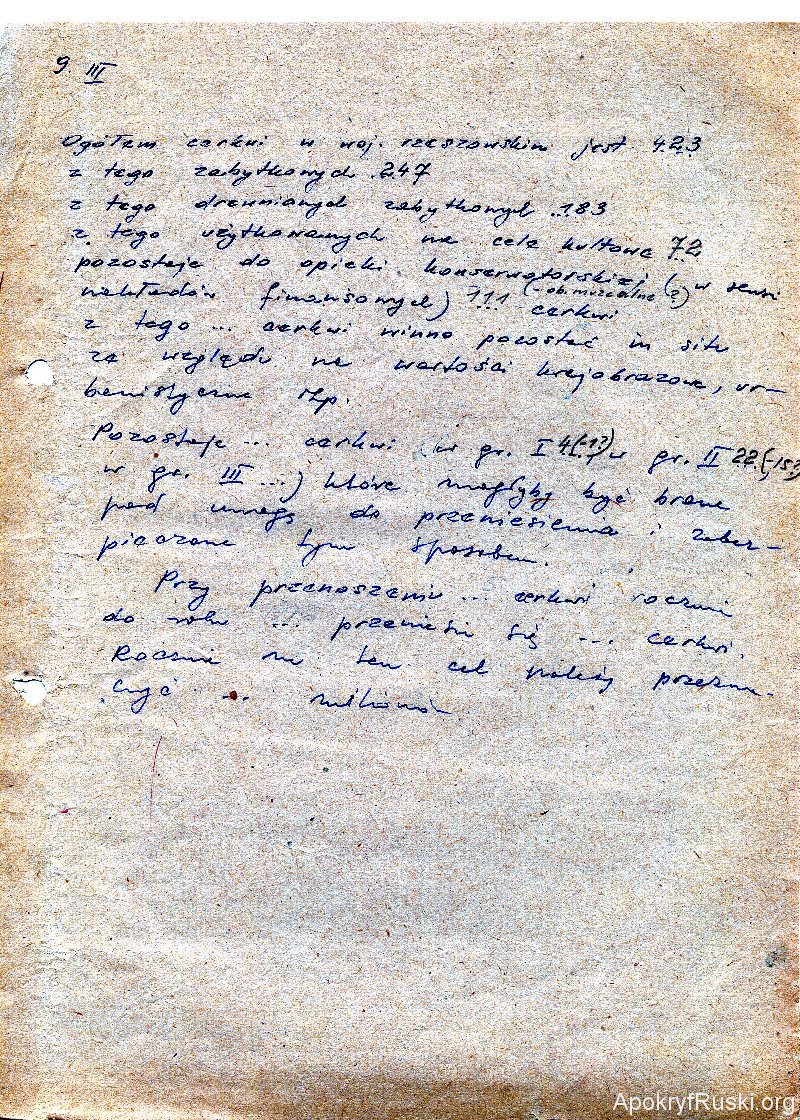 9. III
Ogółem cerkwi w woj. rzeszowskim jest 423
z tego zabytkowych 247
z tego drewnianych zabytkowych 183
z tego użytkowanych na cele kultowe 72
pozostaje do opieki konserwatorskiej (w sensie
nakładów finansowych) 111 (-ob. muzealne ?) cerkwi
z tego ... cerkwi winno pozostać in situ
ze względu na wartości krajobrazowe, ur-
banistyczne itp.
Pozostaje ... cerkwi (w gr. I 4(-1?) w gr. II 22 (-15?)
w gr. III ...) które mogłyby być brane
pod uwagę do przeniesienia i zabez-
pieczone tym sposobem.
Przy przenoszeniu ... cerkwi rocznie
do roku ... przeniesie się ... cerkwi.
Rocznie na ten cel należy przezna-
czyć ... milionów
ApokryfRuski.org